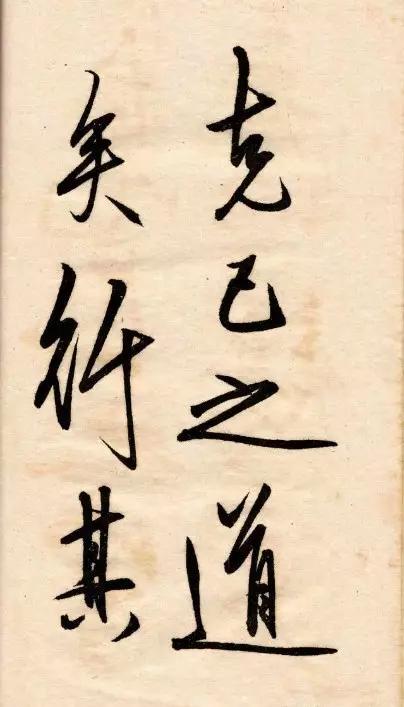 克己之道
矣行其